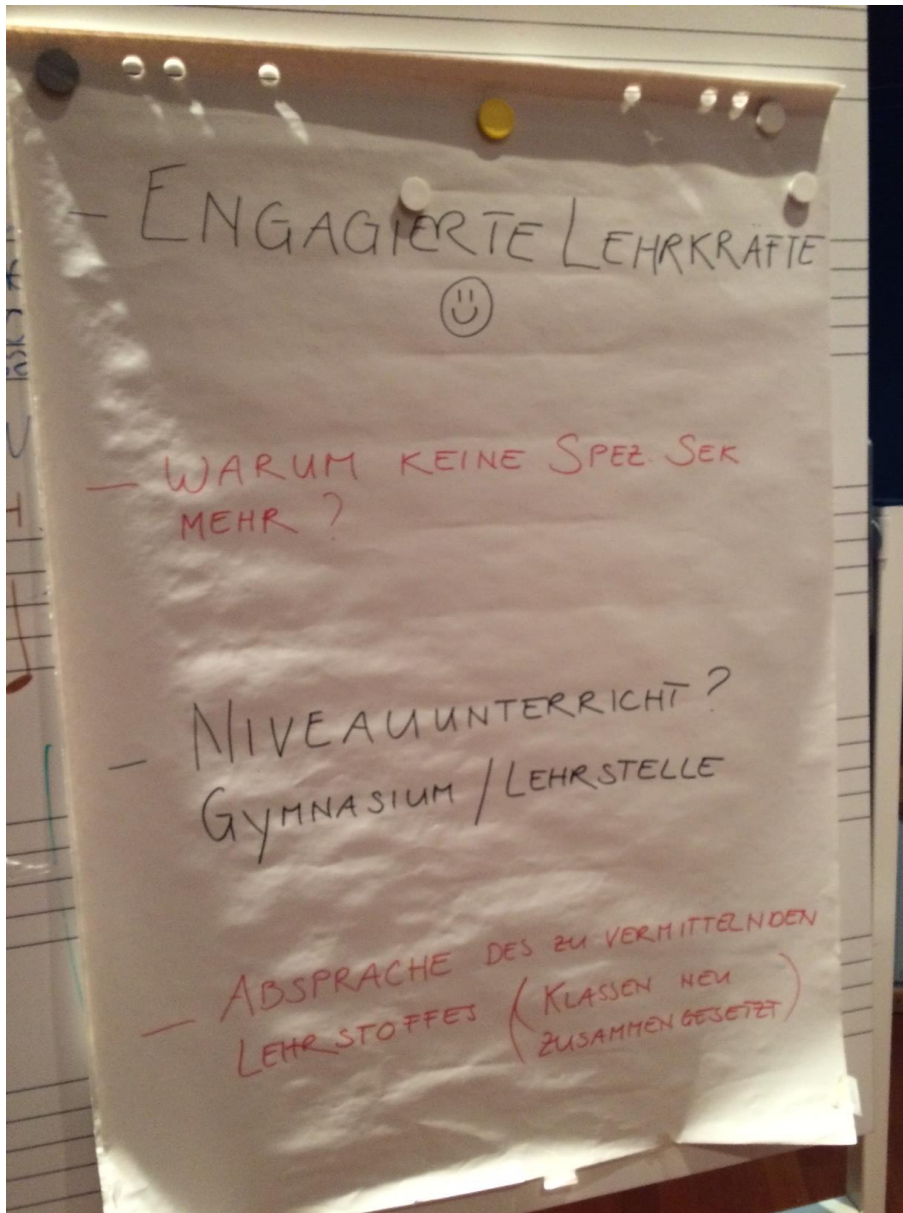 – ENGAGIERTE LEHRKRÄFTE
– WARUM KEINE SPEZ. SEK
MEHR ?
– NIVEAUUNTERRICHT ?
GYMNASIUM / LEHRSTELLE
– ABSPRACHE DES ZU VERMITTELNDEN
LEHRSTOFFES (KLASSEN NEU
ZUSAMMENGESETZT)